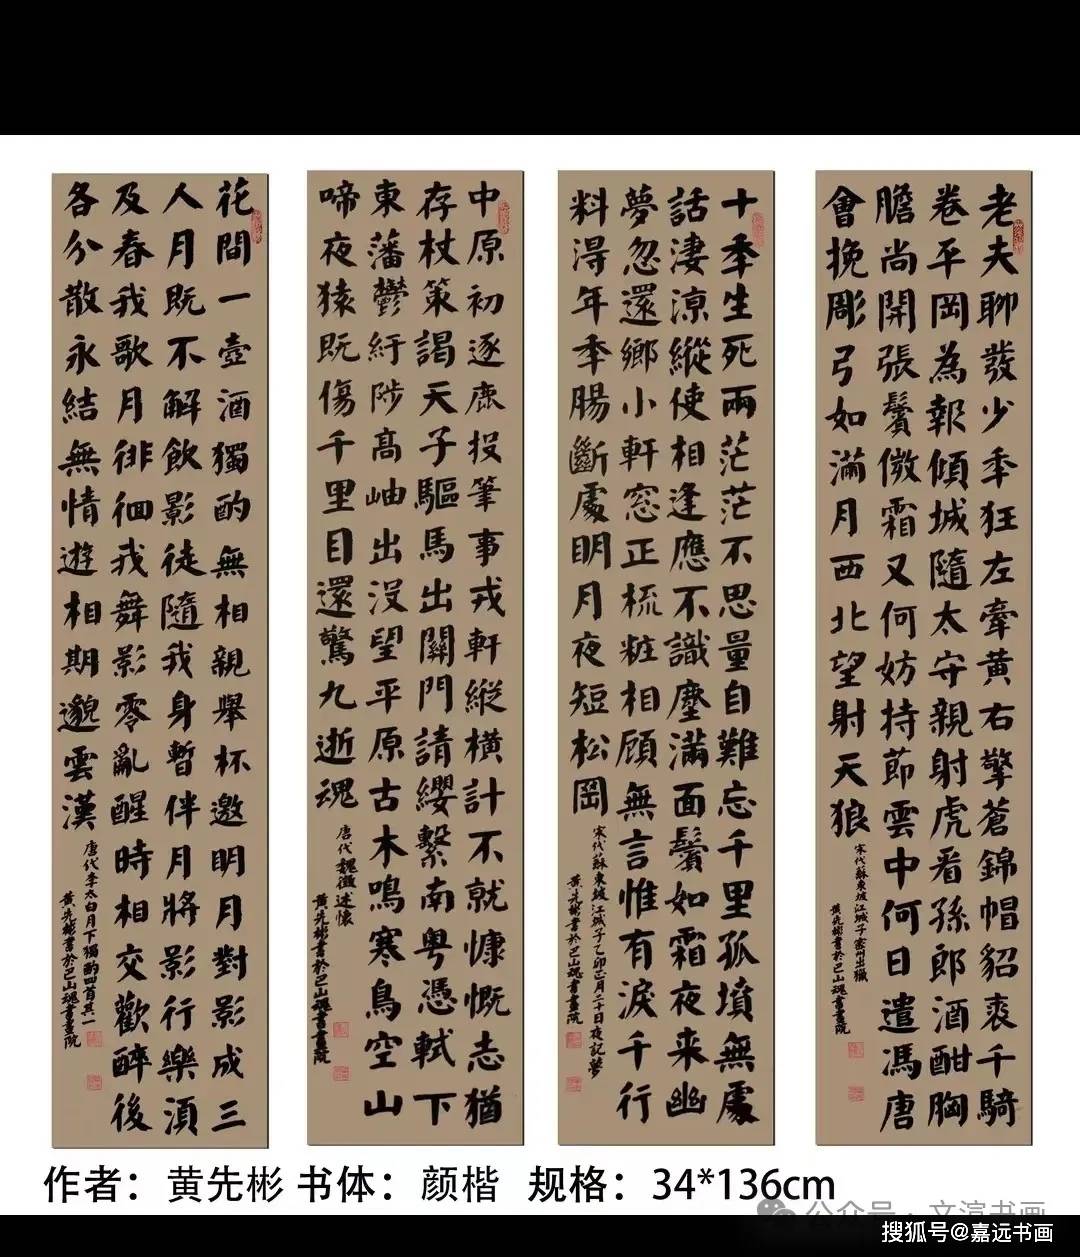 老夫聊發少秊狂左牽黄右擎蒼錦帽貂裘千騎
卷平岡為報傾城隨太守親射虎看孫郎酒酣胸
膽尚開張鬢微霜又何妨持莭雲中何日遣馮唐
會挽彫弓如滿月西北望射天狼
宋代蘇東坡江城子密州出獵
黄先彬書於巴山魂書畫院
十秊生死兩茫茫不思量自難忘千里孤墳無處
話淒涼縱使相逢應不識塵滿面鬢如霜夜来幽
夢忽還鄉小軒窓正梳粧相顧無言惟有淚千行
料淂年秊腸斷處明月夜短松岡
宋代蘇東坡江城子乙卯正月二十日夜記夢
黄先彬書於巴山魂書畫院
中原初逐鹿投筆事戎軒縱橫計不就慷慨志猶
存杖策謁天子驅馬出關門請纓繫南粤憑軾下
東藩鬱紆陟高岫出没望平原古木鳴寒鳥空山
啼夜猿既傷千里目還驚九逝魂
唐代魏徵述懷
黄先彬書於巴山魂書畫院
花間一壺酒獨酌無相親舉杯邀明月對影成三
人月既不解飲影徒隨我身暫伴月將影行樂須
及春我歌月徘徊我舞影零亂醒時相交歡醉後
各分散永結無情遊相期邈雲漢
唐代李太白月下獨酌四首其一
黄先彬書於巴山魂書畫院
作者：黄先彬 书体：颜楷 规格：34*136cm
公众号·文渲书画
搜狐号@嘉远书画